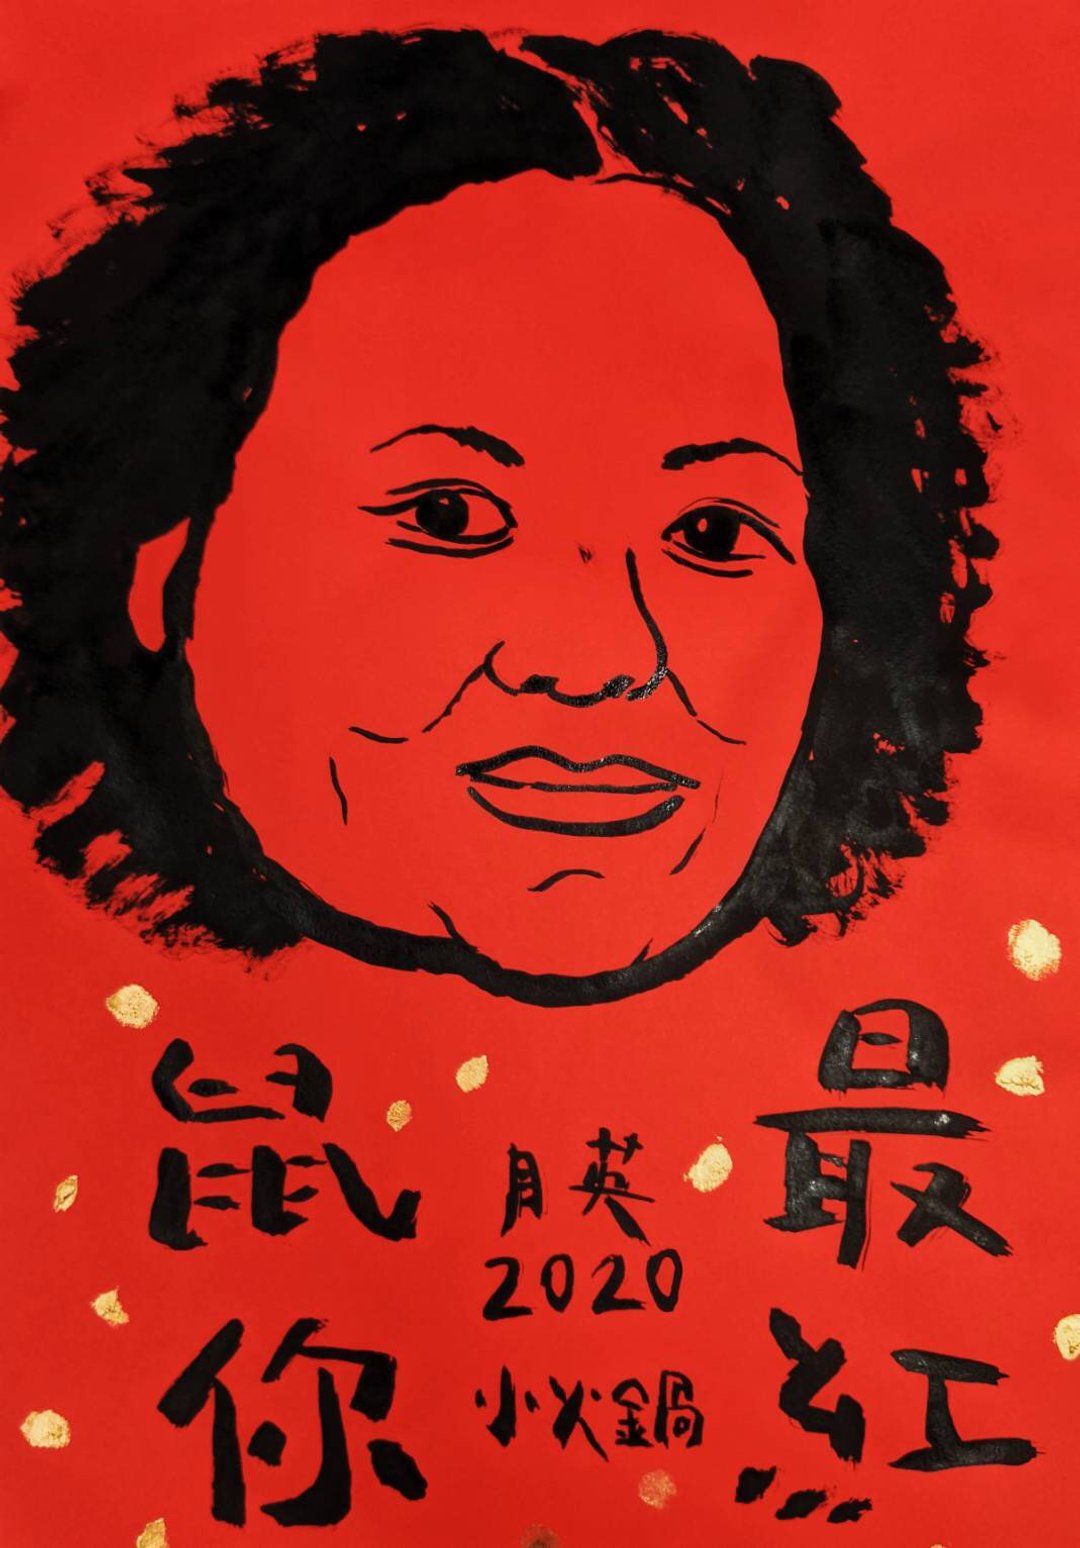 鼠你
最紅
月英
2020
小火鍋